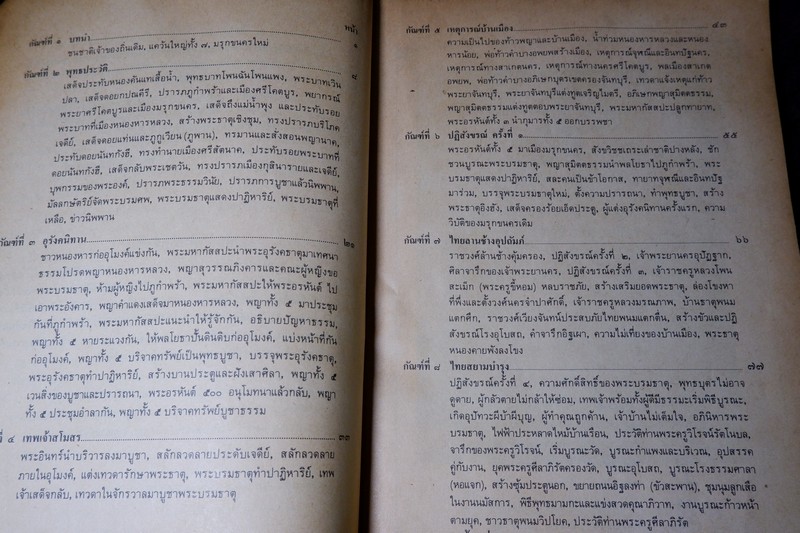 หน้า
กัณฑ์ที่ ๑ บทนำ ๑
ชนชาติเจ้าของถิ่นเดิม, แคว้นใหญ่ทั้ง ๗, มรุกขนครใหม่
กัณฑ์ที่ ๒ พุทธประวัติ ๘
เสด็จประทับหนองคันแทเสื้อน้ำ, พุทธบาทโพนฉันโพนแพง, พระบาทเวิน
ปลา, เสด็จดอยกปณคีรี, ปรารภภูกำพร้าและเมืองศรีโคตบูร, พยากรณ์
พระยาศรีโคตบูรและเมืองมรุกขนคร, เสด็จถึงแม่น้ำพุง และประทับรอย
พระบาทที่เมืองหนองหารหลวง, สร้างพระธาตุเชิงชุม, ทรงปรารภบริโภค
เจดีย์, เสด็จดอยแท่นและภูกูเวียน (ภูพาน), ทรมานและสั่งสอนพญานาค,
ประทับดอยนันทกังฮี, ทรงทำนายเมืองศรีสัตนาค, ประทับรอยพระบาทที่
ดอยนันทกังฮี, เสด็จกลับพระเชตวัน, ทรงปรารภกุสินารายและเจดีย์,
บุพกรรมของพระองค์, ปรารภพระธรรมวินัย, ปรารภการบูชาแล้วนิพพาน,
มัลลกษัตริย์จัดพระบรมศพ, พระบรมธาตุแสดงปาฏิหาริย์, พระบรมธาตุที่
เหลือ, ข่าวนิพพาน
กัณฑ์ที่ ๓ อุรังคนิทาน ๒๑
ชาวหนองหารก่ออุโมงค์แข่งกัน, พระมหากัสสปะนำพระอุรังคธาตุมาเทศนา
ธรรมโปรดพญาหนองหารหลวง, พญาสุวรรณภิงคารและคณะผู้หญิงขอ
พระบรมธาตุ, ห้ามผู้หญิงไปภูกำพร้า, พระมหากัสสปะให้พระอรหันต์ ไป
เอาพระอังคาร, พญาคำแดงเสด็จมาหนองหารหลวง, พญาทั้ง ๕ มาประชุม
กันที่ภูกำพร้า, พระมหากัสสปะแนะนำให้รู้จักกัน, อธิบายปัญหาธรรม,
พญาทั้ง ๕ หายระแวงกัน, ให้พลโยธาปั้นดินดิบก่ออุโมงค์, แบ่งหน้าที่กัน
ก่ออุโมงค์, พญาทั้ง ๕ บริจาคทรัพย์เป็นพุทธบูชา, บรรจุพระอุรังคธาตุ,
พระอุรังคธาตุทำปาฏิหาริย์, สร้างบานประตูและฝังเสาศิลา, พญาทั้ง ๕
เวนสิ่งของบูชาและปรารถนา, พระอรหันต์ ๕๐๐ อนุโมทนาแล้วกลับ, พญา
ทั้ง ๕ ประชุมอำลากัน, พญาทั้ง ๕ บริจาคทรัพย์บูชาธรรม
ที่ ๔ เทพเจ้าสโมสร ๓๓
พระอินทร์นำบริวารลงมาบูชา, สลักลวดลายประดับเจดีย์, สลักลวดลาย
ภายในอุโมงค์, แต่งเทวดารักษาพระธาตุ, พระบรมธาตุทำปาฏิหาริย์, เทพ
เจ้าเสด็จกลับ, เทวดาในจักรวาลมาบูชาพระบรมธาตุ
กัณฑ์ที่ ๕ เหตุการณ์บ้านเมือง ๔๓
ความเป็นไปของท้าวพญาและบ้านเมือง, น้ำท่วมหนองหารหลวงและหนอง
หารน้อย, พ่อท้าวคำบางอพยพสร้างเมือง, เหตุการณ์จุฬณีและอินทปัฐนคร,
เหตุการณ์ทางสาเกตนคร, เหตุการณ์ทางนครศรีโคตบูร, พลเมืองสาเกต
อพยพ, พ่อท้าวคำบางอภิเษกบุตรเขตครองจันทบุรี, เทวดาแจ้งเหตุแก่ท้าว
พระยาจันทบุรี, พระยาจันทบุรีแต่งทูตเจริญไมตรี, อภิเษกพญาสุมิตตธรรม,
พญาสุมิตตธรรมแต่งทูตตอบพระยาจันทบุรี, พระมหากัสสปะปลูกทายาท,
พระอรหันต์ทั้ง ๓ นำกุมารทั้ง ๕ ออกบรรพชา
กัณฑ์ที่ ๖ ปฏิสังขรณ์ ครั้งที่ ๑ ๕๕
พระอรหันต์ทั้ง ๕ มาเมืองมรุกขนคร, สังขวิชชเถระเล่าชาติปางหลัง, ชัก
ชวนบูรณะพระบรมธาตุ, พญาสุมิตตธรรมนำพลโยธาไปภูกำพร้า, พระ
บรมธาตุแสดงปาฏิหาริย์, สละคนเป็นข้าโอกาส, ทายาทจุฬณีและอินทปัฐ
มาร่วม, บรรจุพระบรมธาตุใหม่, ตั้งความปรารถนา, ทำพุทธบูชา, สร้าง
พระธาตุอิงฮัง, เสด็จครองร้อยเอ็ดประตู, ผู้แต่งอุรังคนิทานครั้งแรก, ความ
วิบัติของมรุกขนครเดิม
กัณฑ์ที่ ๗ ไทยลานช้างอุปถัมภ์ ๖๖
ราชวงค์ล้านช้างคุ้มครอง, ปฏิสังขรณ์ครั้งที่ ๒, เจ้าพระยานครอุปัฏฐาก,
ศิลาจารึกของเจ้าพระยานคร, ปฏิสังขรณ์ครั้งที่ ๓, เจ้าราชครูหลวงโพน
สะเม็ก (พระครูขี้หอม) หลบราชภัย, สร้างเสริมยอดพระธาตุ, ล่องโขงหา
ที่พึ่งและตั้งวงศ์นครจำปาศักดิ์, เจ้าราชครูหลวงมรณภาพ, บ้านธาตุพนม
แตกศึก, ราชวงศ์เวียงจันทน์ประสบภัยไทยพนมแตกตื่น, สร้างขัวและปฏิ
สังขรณ์โรงอุโบสถ, คำจารึกอิฐเผา, ความไม่เที่ยงของบ้านเมือง, พระธาตุ
หนองคายพังลงโขง
กัณฑ์ที่ ๘ ไทยสยามบำรุง ๗๗
ปฏิสังขรณ์ครั้งที่ ๔, ความศักดิ์สิทธิ์ของพระบรมธาตุ, พุทธบุตรไม่อาจ
ดูดาย, ผู้กลัวตายไม่กล้าให้ซ่อม, เทพเจ้าพร้อมทั้งผู้ดีมีธรรมะเริ่มพิธีบูรณะ,
เกิดอุปัทวะผีบ้าผีบุญ, ผู้ทำคุณถูกด้าน, เจ้าบ้านไม่เต็มใจ, อภินิหารพระ
บรมธาตุ, ไฟฟ้าประหลาดไหม้บ้านเรือน, ประวัติท่านพระครูวิโรจน์รัตโนบล,
จารึกของพระครูวิโรจน์, เริ่มบูรณะวัด, บูรณะกำแพงและบริเวณ, อุปสรรค
คู่กับงาน, ยุคพระครูศีลาภิรัตครองวัด, บูรณะอุโบสถ, บูรณะโรงธรรมศาลา
(หอแจก), สร้างซุ้มประตูนอก, ขยายถนนอิฐลงท่า (ขัวสะพาน), ชุมนุมลูกเสือ
ในงานนมัสการ, พิธีพุทธมามกะและแข่งสวดคุณาภิวาท, งานบูรณะก้าวหน้า
ตามยุค, ชาวธาตุพนมวิปโยค, ประวัติท่านพระครูศีลาภิรัต